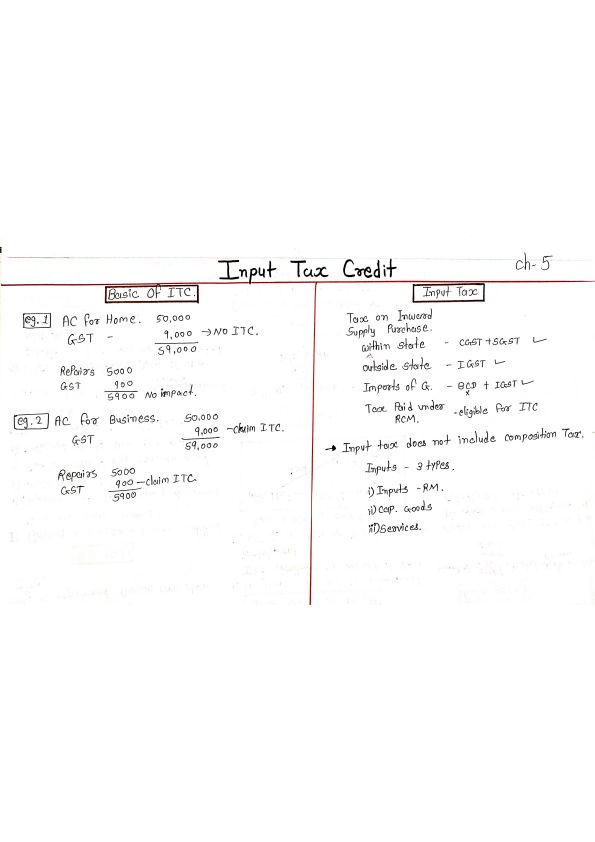 Input Tax Credit
ch-5
Basic Of ITC.
eg. 1 AC for Home. 50,000
GST - 9,000 → NO ITC.
59,000
Repairs 5000
GST 900
5900 No impact.
eg. 2 AC for Business. 50,000
GST 9,000 - claim ITC.
59,000
Repairs 5000
GST 900 - claim ITC.
5900
Input Tax
Tax on Inward
Supply Purchase.
within state - CGST + SGST ✓
outside state - IGST ✓
Imports of G. - BCD + IGST ✓
x
Tax Paid under
RCM. - eligible for ITC
→ Input tax does not include composition Tax.
Inputs - 3 types.
i) Inputs - RM.
ii) Cap. Goods
iii) Services.